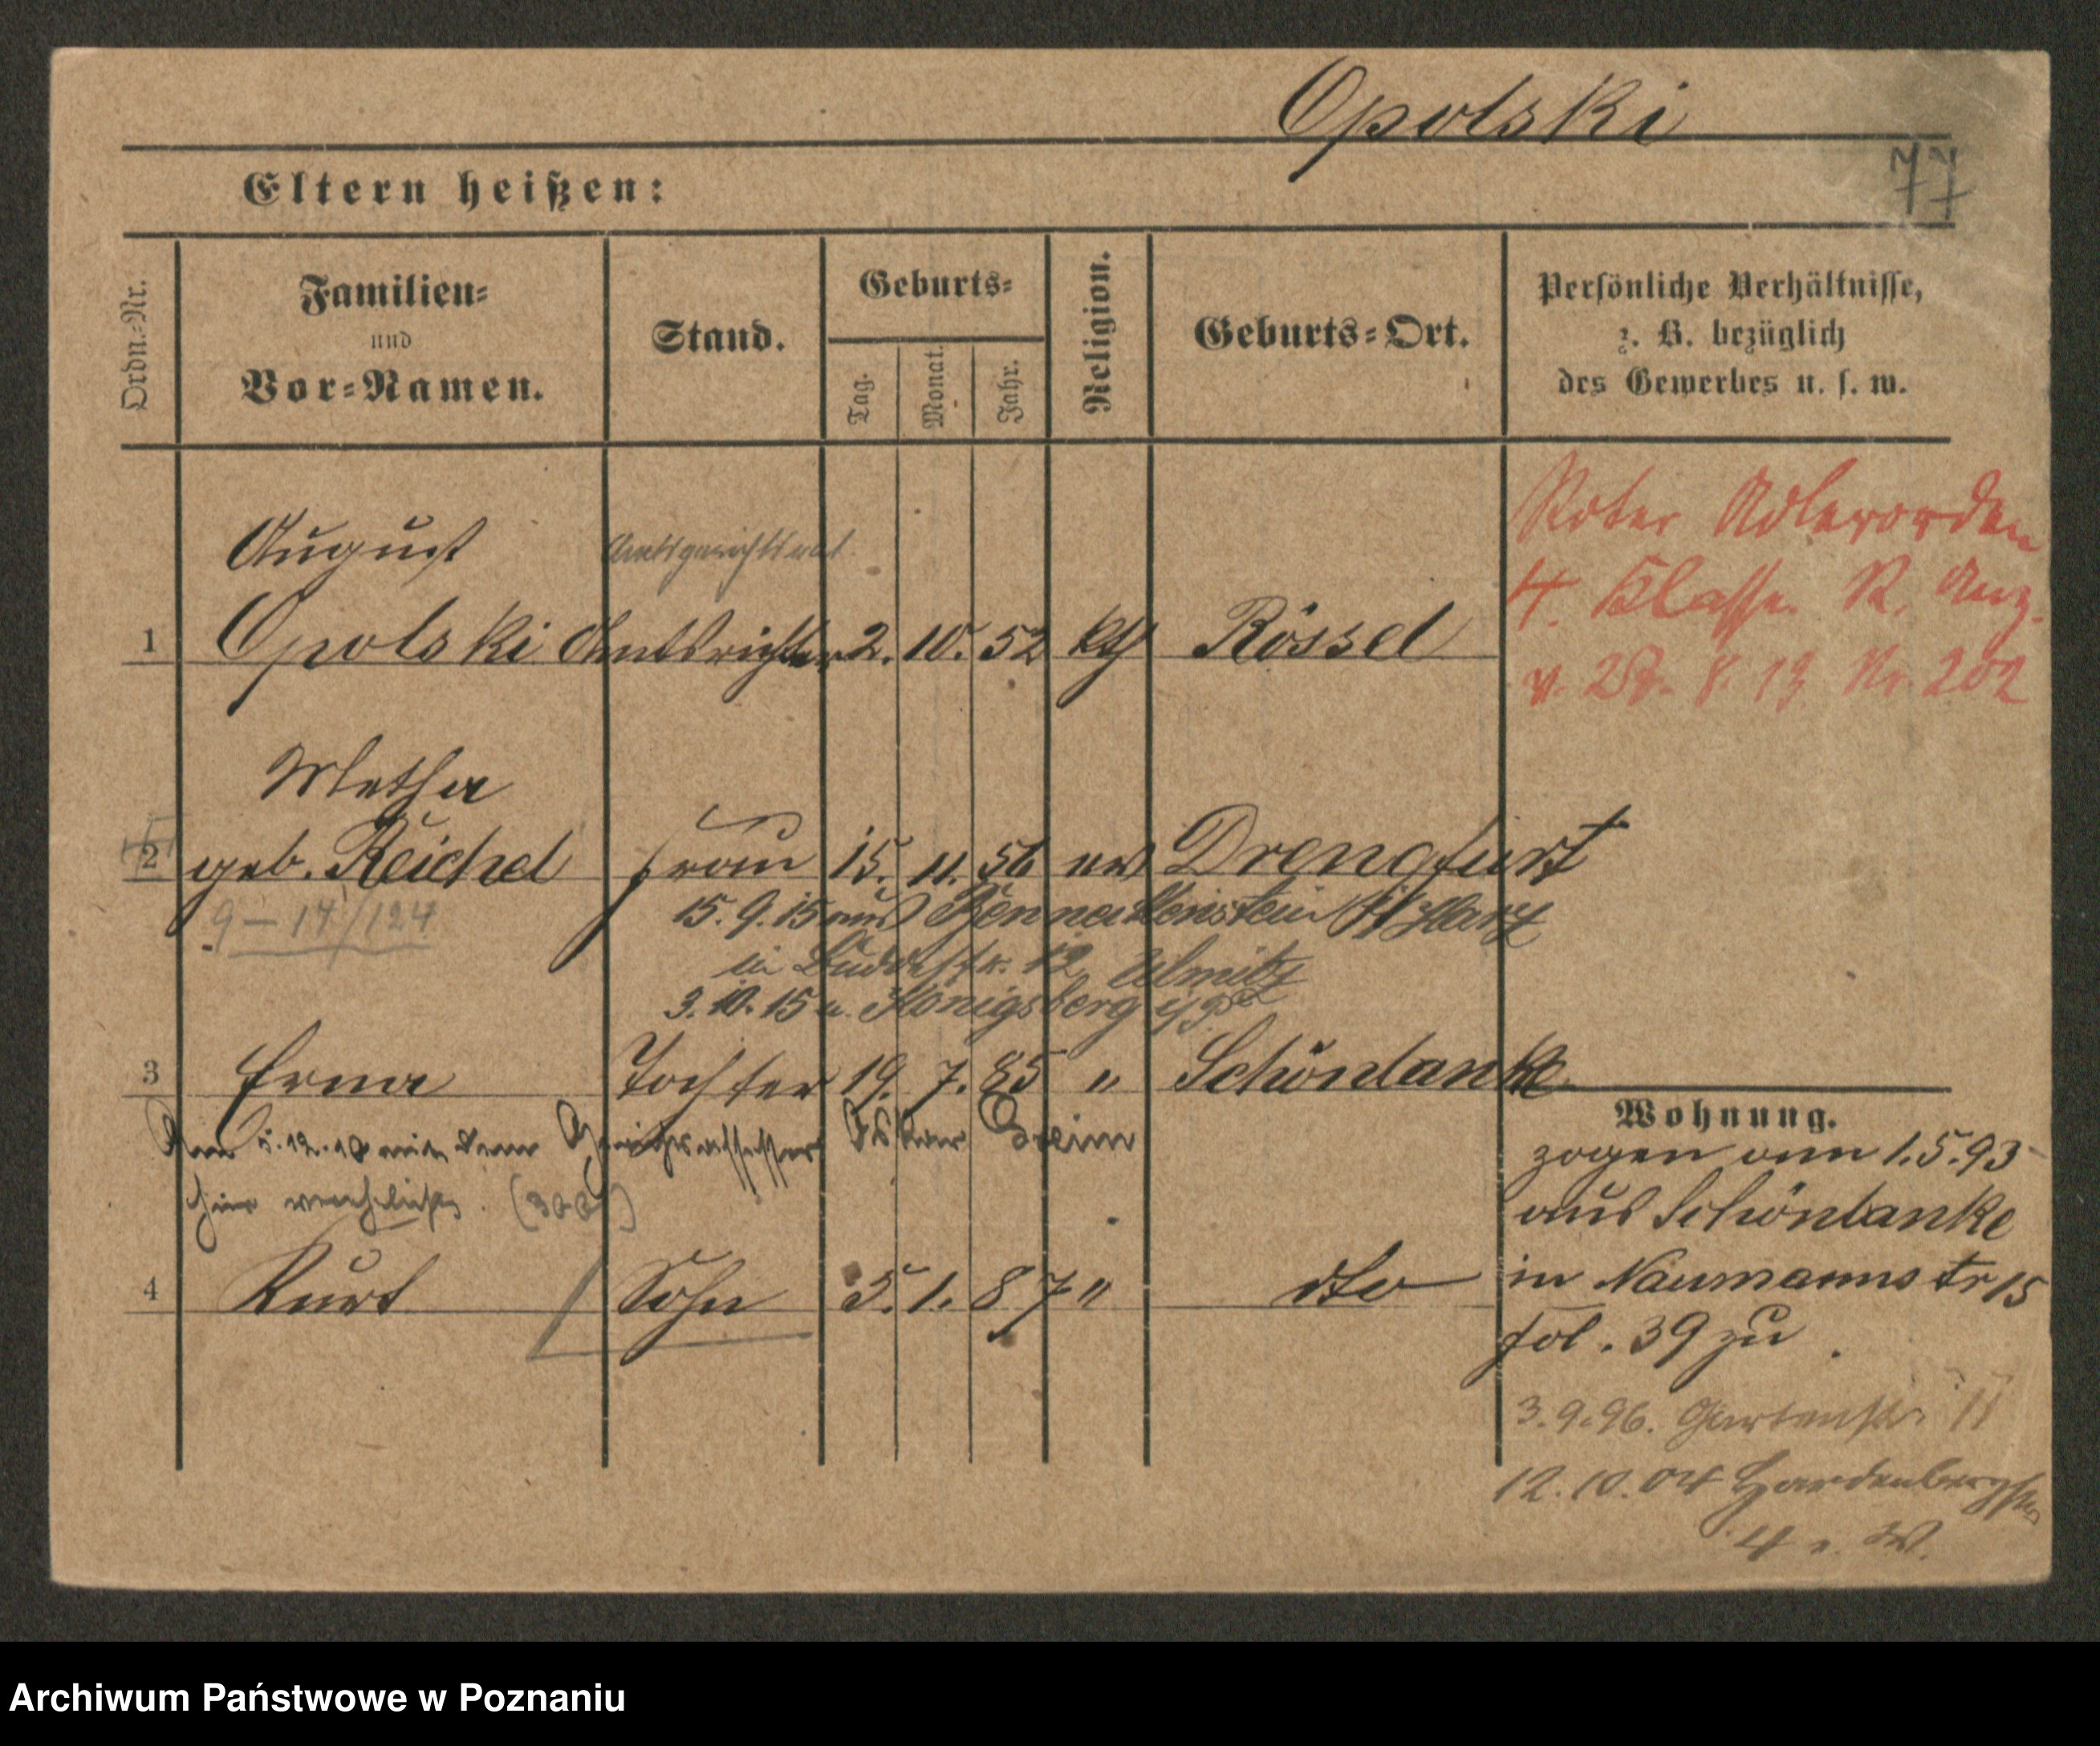 Opolski
77
Eltern heißen:
Ordn.-Nr.
Familien-
und
Vor-Namen.
Stand.
Geburts-
Tag.
Monat.
Jahr.
Religion.
Geburts-Ort.
Persönliche Verhältnisse,
z. B. bezüglich
des Gewerbes u. s. w.
August
Amtsgerichtsrat
1 Opolski Amtsrichter 2. 10. 52 kth Rössel
Roter Adlerorden
4. Klasse R. Anz.
v. 28. 8. 13 Nr. 202
Metha
2 geb. Reichel Frau 15. 11. 56 ev Drengfurt
9 – 17/124
15. 9. 15 aus Benneckenstein Harz
in 12
3. 10. 15 n. Königsberg
3 Erna Tochter 19. 7. 85 " Schönlanke
Am 5.12.10 mit dem Gerichtsassessor Oskar Greim
hier verehelicht.
4 Kurt Sohn 5. 1. 87 " dto
Wohnung.
zogen am 1.5.93
aus Schönlanke
in Naumannstr 15
fol. 39 zu
3.9.96. Gartenstr. 11
12.10.04 Hardenbergstr
4 n. W.
Archiwum Państwowe w Poznaniu